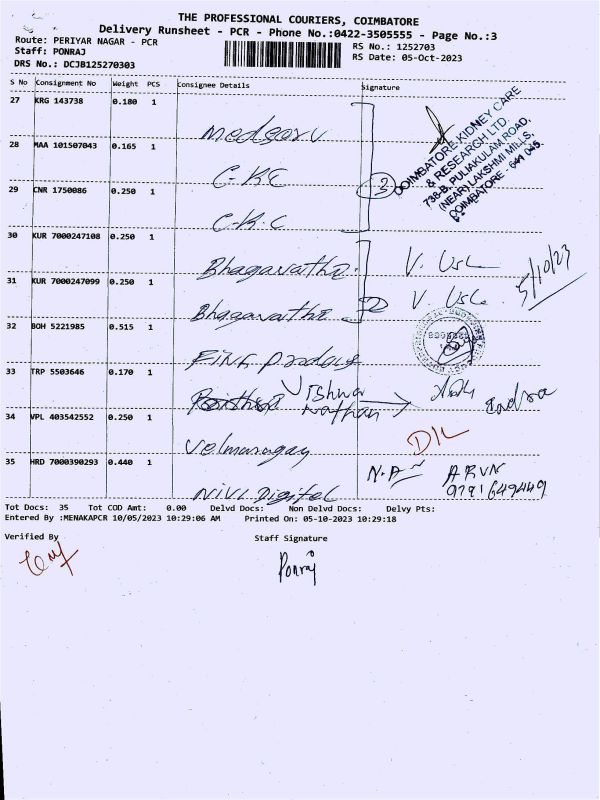 THE PROFESSIONAL COURIERS, COIMBATORE
Delivery Runsheet - PCR - Phone No.:0422-3505555 - Page No.:3
Route: PERIYAR NAGAR - PCR
RS No.: 1252703
Staff: PONRAJ
RS Date: 05-Oct-2023
DRS No.: DCJB125270303
S No Consignment No Weight PCS Consignee Details Signature
27 KRG 143738 0.180 1
Medserv
28 MAA 101507043 0.165 1
C-KC
29 CNR 1750086 0.250 1
C-K-C
3
COIMBATORE KIDNEY CARE
& RESEARCH LTD.
738-B, PULIAKULAM ROAD,
(NEAR) LAKSHMI MILLS,
COIMBATORE - 641 045.
30 KUR 7000247108 0.250 1
Bhagavathe V. Usc
31 KUR 7000247099 0.250 1
Bhagavathe 2 V. Usc 5/10/23
32 BOH 5221985 0.515 1
33 TRP 5503646 0.170 1
Vishwa
Nathan
34 VPL 403542552 0.250 1
Velmurugan D/L
35 HRD 7000390293 0.440 1
N.A ARVN
Nivi Digital 9791649449
Tot Docs: 35 Tot COD Amt: 0.00 Delvd Docs: Non Delvd Docs: Delvy Pts:
Entered By :MENAKAPCR 10/05/2023 10:29:06 AM Printed On: 05-10-2023 10:29:18
Verified By Staff Signature
Ponraj